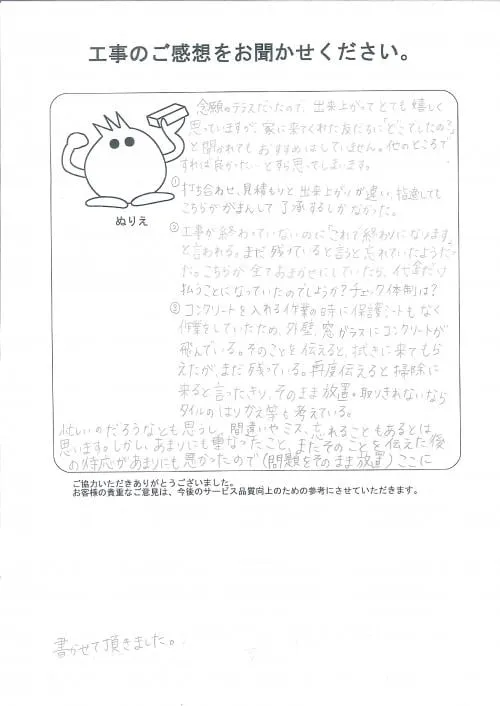 工事のご感想をお聞かせください。
念願のテラスだったので、出来上がってとても嬉しく
思っていますが、家に来てくれた友だちに「どこでしたの?」
と聞かれてもおすすめはしていません。他のところで
すれば良かった…とすら思ってしまいます。
① 打ち合わせ、見積もりと出来上がりが違い、指摘しても
こちらががまんして了承するしかなかった。
② 工事が終わっていないのに「これで終わりになります」
と言われる。まだ残っていると言うと忘れていたようだっ
た。こちらが全ておまかせにしていたら、代金だけ
払うことになっていたのでしょうか?チェック体制は?
③ コンクリートを入れる作業の時に保護シートもなく
作業をしていたため、外壁、窓ガラスにコンクリートが
飛んでいる。そのことを伝えると、拭きに来てもら
えたが、まだ残っている。再度伝えると掃除に
来ると言ったきり、そのまま放置。取りきれないなら
タイルのはりかえ等も考えている。
忙しいのだろうなとも思うし、間違いやミス、忘れることもあるとは
思います。しかし、あまりにも重なったこと、またそのことを伝えた後
の対応があまりにも悪かったので(問題をそのまま放置)ここに
ぬりえ
ご協力いただきありがとうございました。
お客様の貴重なご意見は、今後のサービス品質向上のための参考にさせていただきます。
書かせて頂きました。